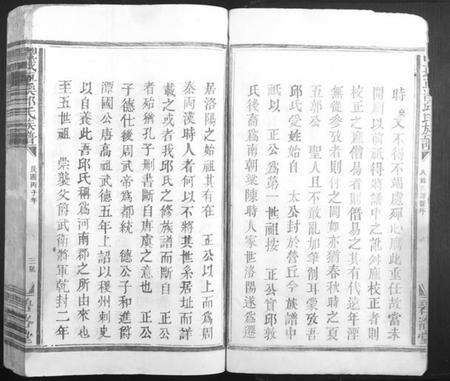 時 又不得不竭處殫心膺此重任故當未
開局以前祇得將譜中之訛舛應校正者則
校正之舊僭易者則僭易之其有代遠年湮
無徵參攷者則付之闕如亦猶春秋時之夏
五郭公 聖人且不敢亂加筆削耳爰攷吾
邱氏受姓始自 太公封於營丘今族譜中
祇以 正公為第一世祖按 正公實邱敦
氏後裔為南朝梁陳時人家世洛陽遂為遷
居洛陽之始祖則在 正公以上而為周
秦兩漢時人者何以不將其世系居址而詳
載之或者我邱氏之修族譜而斷自 正公
者始猶孔子刪書斷自唐虞之意也 正公
子德仕後周武帝為都統 德公子和進爵
譚國公唐高祖武德五年上詔以稷州刺史
以自養此吾邱氏稱為河南郡之所由來也
至五世祖 崇襲父爵武衛將軍乾封二年
民國丙子年
三